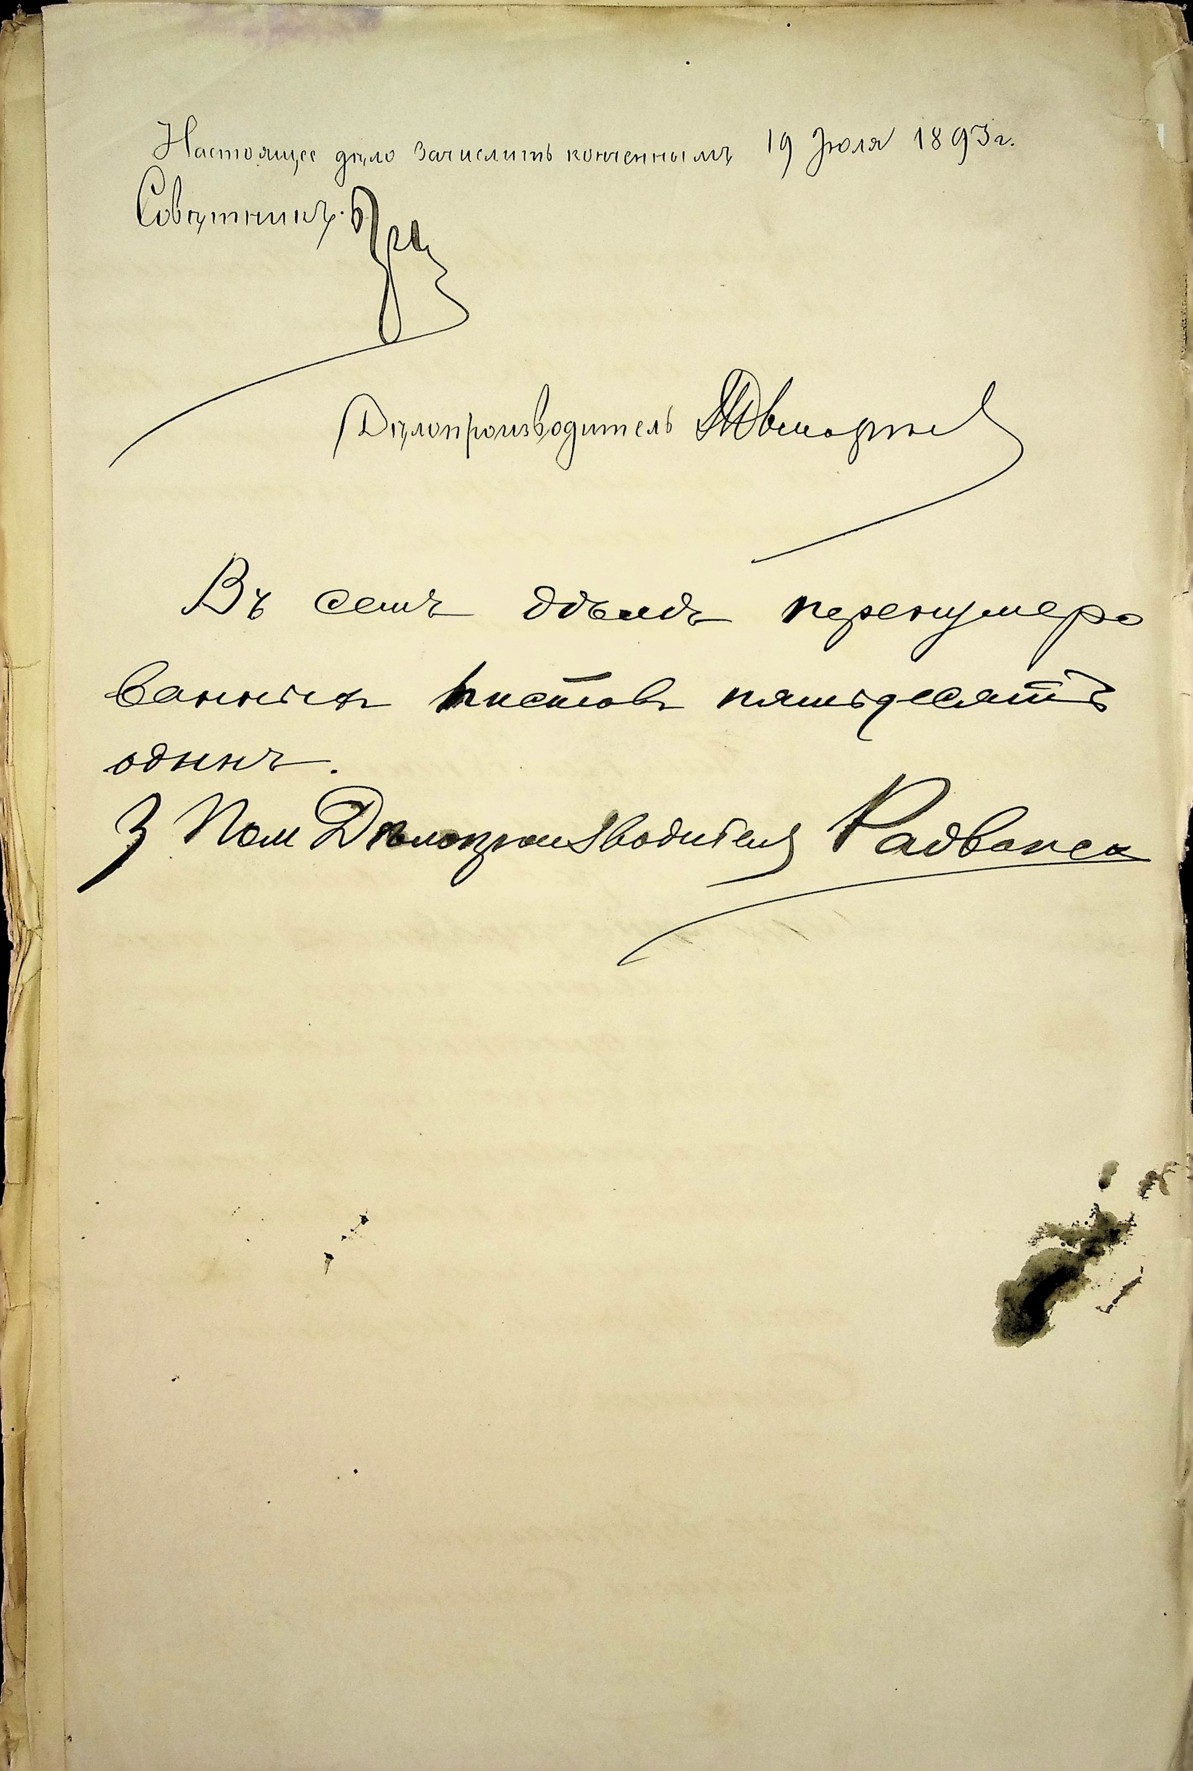 Настоящее дѣло зачислить конченнымъ 19 Июля 1893 г.
Совѣтникъ
Дѣлопроизводитель
Въ семъ дѣлѣ перенумеро
ванныхъ листовъ пятьдесятъ
одинъ.
З Пом Дѣлопроизводителя